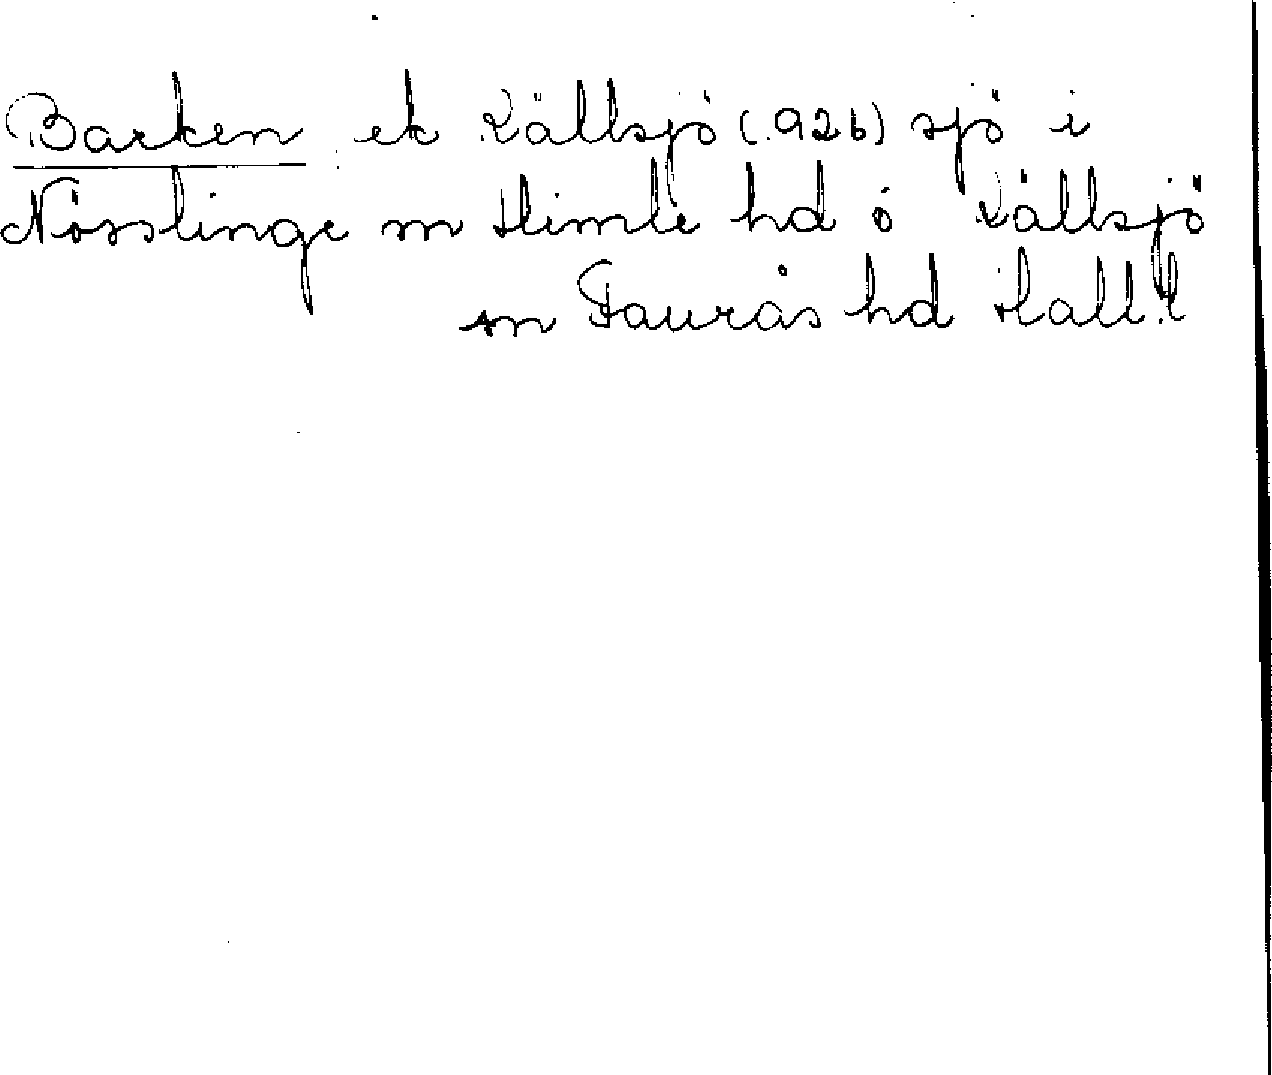 Barken ek Källsjö (926) sjö i
Nösslinge sn Himle hd o Källsjö
sn Faurås hd Hall.l